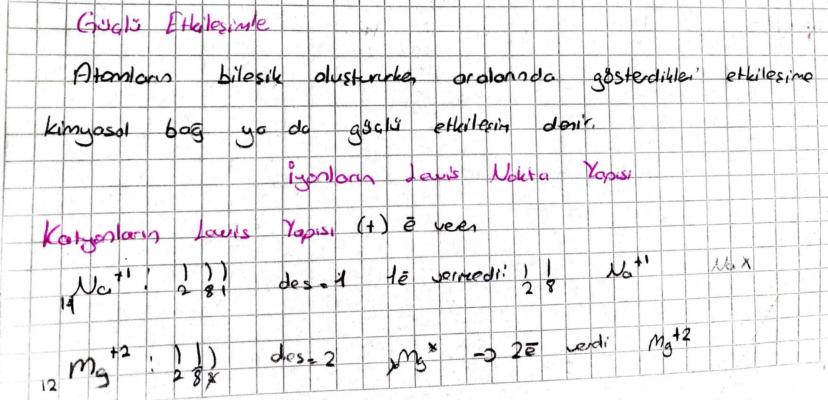 Güçlü Etkileşimle
Atomların bileşik oluştururken aralarında gösterdikleri etkileşime
kimyasal bağ ya da güçlü etkileşim denir.
İyonların Lewis Nokta Yapısı
Katyonların Lewis Yapısı (+) ē veren
11Na+1 : ) ) ) 2 8 1 des=1 1ē vermedi: ) ) 2 8 Na+1 Na x
12Mg+2 : ) ) ) 2 8 x des=2 xMgx → 2ē verdi Mg+2